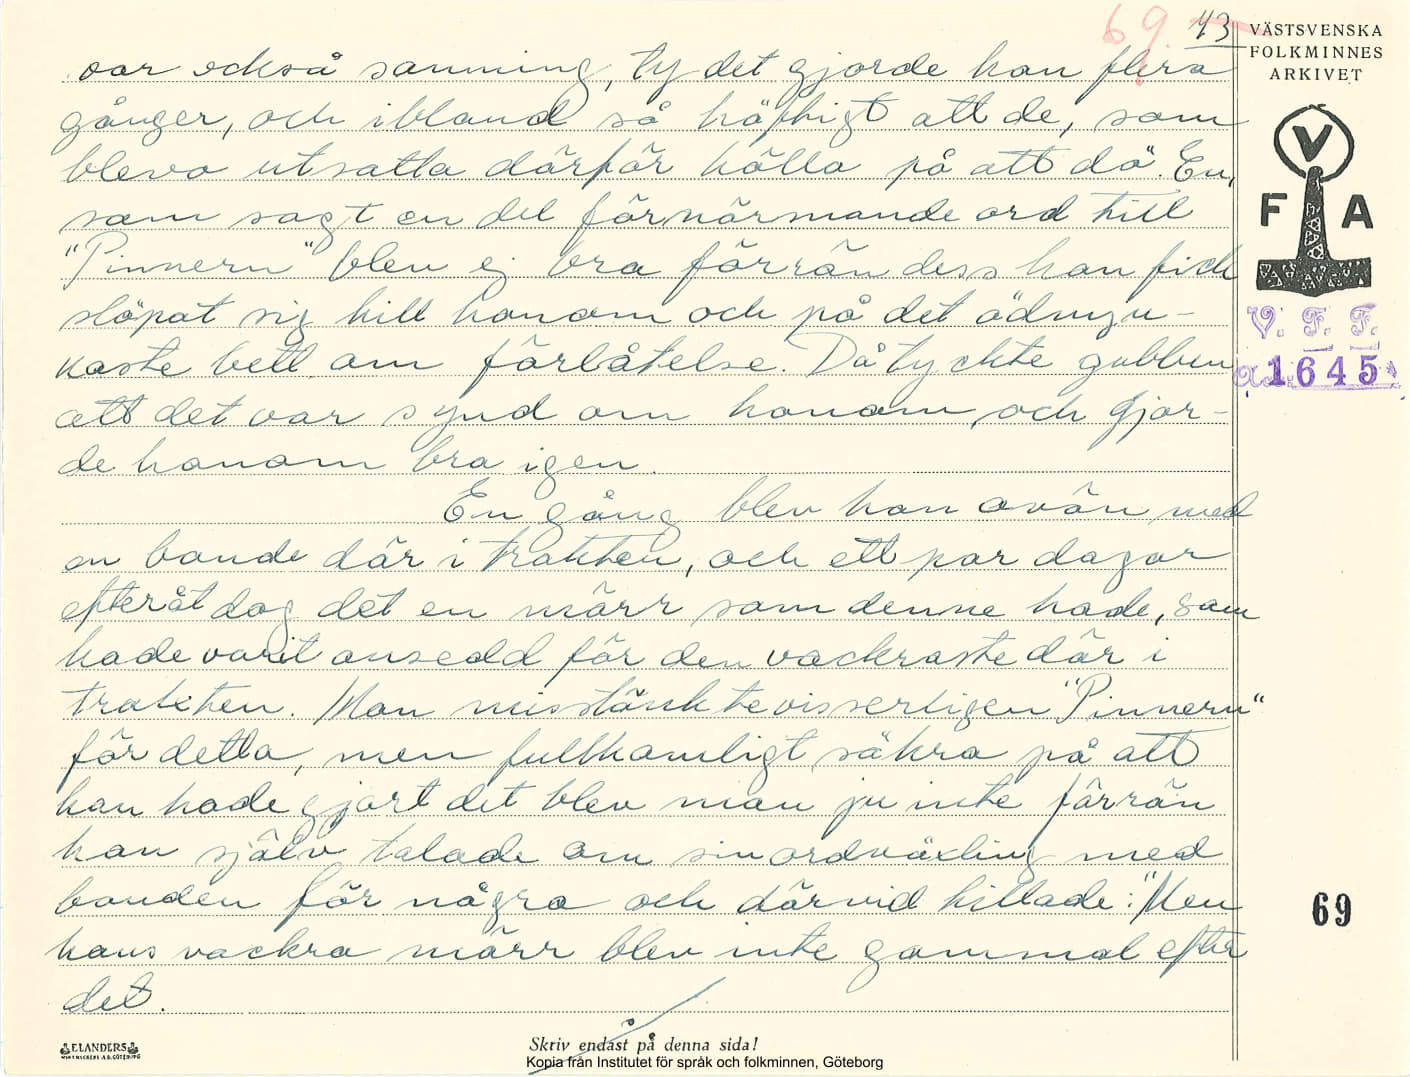 69. 43
VÄSTSVENSKA
FOLKMINNES
ARKIVET
V
F A
V. F. F.
1645
var också sanning, ty det gjorde han flera
gånger, och ibland så häftigt att de, som
blevo utsatta därför hålla på att dö. En,
som sagt en del förnärmande ord till
"Pinnern" blev ej bra förrän dess han fick
släpat sig till honom och på det ödmju-
kaste bett om förlåtelse. Då tyckte gubben
att det var synd om honom, och gjor-
de honom bra igen.
En gång blev han ovän med
en bonde där i trakten, och ett par dagar
efteråt dog det en märr som denne hade, som
hade varit ansedd för den vackraste där i
trakten. Man misstänkte visserligen "Pinnern"
för detta, men fullkomligt säkra på att
han hade gjort det blev man ju inte förrän
han själv talade om sin ordväxling med
bonden för några och därvid tillade: "Men
hans vackra märr blev inte gammal efter
det.
69
ELANDERS
Skriv endast på denna sida!
Kopia från Institutet för språk och folkminnen, Göteborg